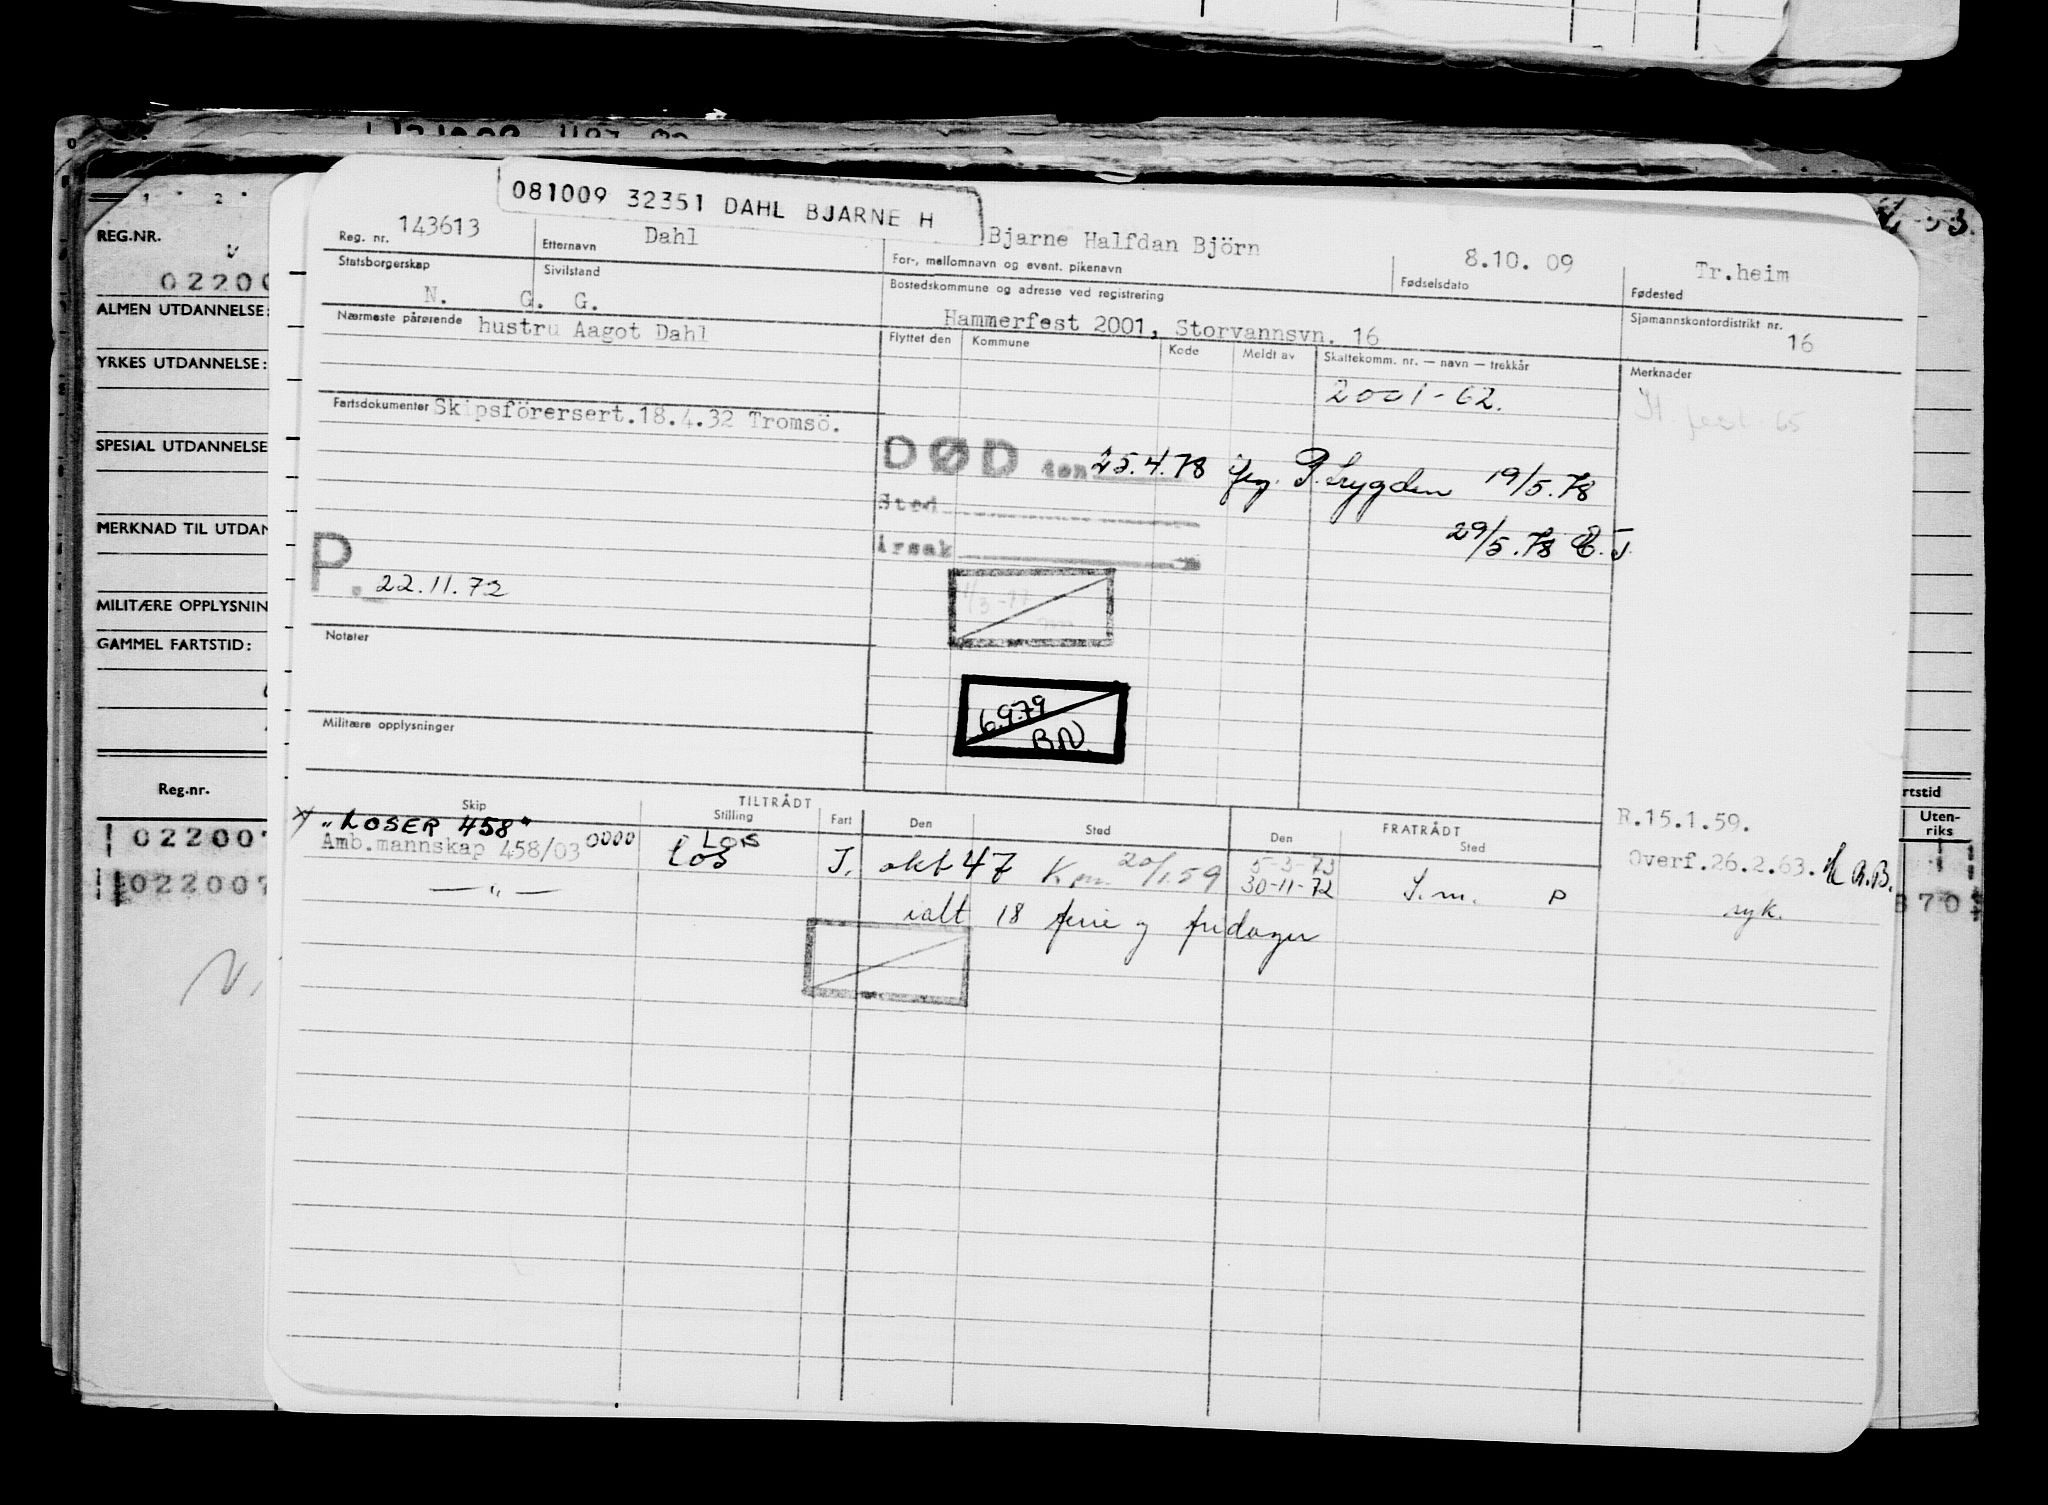 1 2
REG.NR.
ALMEN UTDANNELSE:
YRKES UTDANNELSE:
SPESIAL UTDANNELSE
MERKNAD TIL UTDAN
MILITÆRE OPPLYSNIN
GAMMEL FARTSTID:
Reg.nr.
022007
022007
081009 32351 DAHL BJARNE H
Reg. nr. 143613
Etternavn Dahl
Bjarne Halfdan Björn
For-, mellomnavn og event. pikenavn
8.10. 09
Fødselsdato
Tr.heim
Fødested
Statsborgerskap N.
Sivilstand G. G.
Bostedskommune og adresse ved registrering
Hammerfest 2001, Storvannsvn. 16
Sjømannskontordistrikt nr.
16
Nærmeste pårørende hustru Aagot Dahl
Flyttet den Kommune Kode Meldt av Skattekomm. nr. — navn — trekkår
Merknader
2001-62.
Fartsdokumenter Skipsförersert.18.4.32 Tromsö.
DØD den 25.4.78 19/5.78
Sted
29/5.78
Årsak
P. 22.11.72
Notater
6.9.79
BN.
Militære opplysninger
Skip TILTRÅDT Stilling Fart Den Sted FRATRÅDT Den Sted
R.15.1.59.
"LOSER 458"
Amb.mannskap 458/03 0000 LOS
Los I. okt 47 20/1.59 5-3-73
30-11-72 I.m. P
Overf.26.2.63. A.B.
— " —
syk.
ialt 18 ferie og fridager
rtstid
Uten-
riks
870